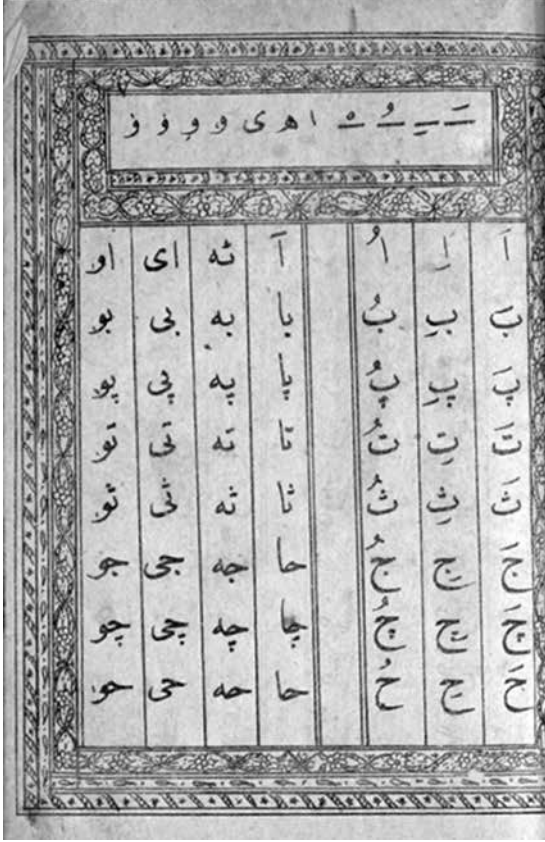 ـَ ـِ ـُ ـْ ا ه ی و
اَ اِ اُ آ ئه ای او
بَ بِ بُ با به بی بو
پَ پِ پُ پا په پی پو
تَ تِ تُ تا ته تی تو
ثَ ثِ ثُ ثا ثه ثی ثو
جَ جِ جُ حا جه جی جو
چَ چِ چُ چا چه چی چو
حَ حِ حُ حا حه حی حو